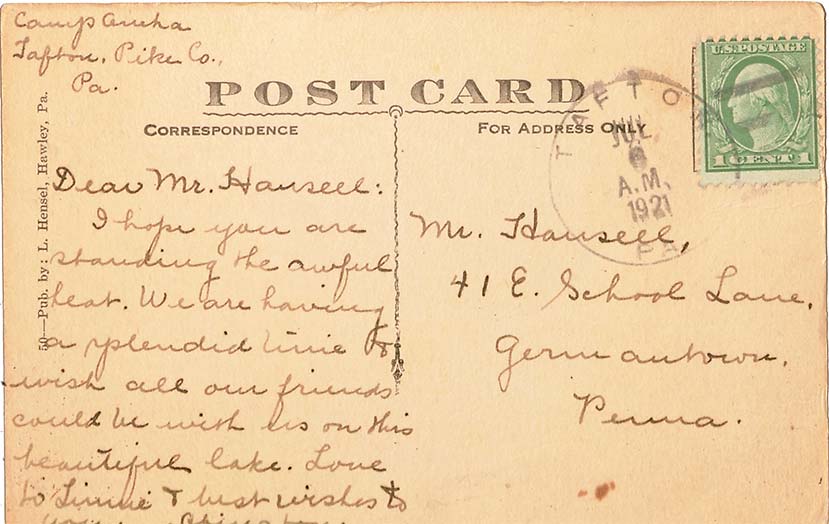 Camp
Tafton, Pike Co.,
Pa.
POST CARD
CORRESPONDENCE
FOR ADDRESS ONLY
U.S. POSTAGE
1 CENT 1
TAFTON
JUL
6
A.M.
1921
PA
50—Pub. by: L. Hensel, Hawley, Pa.
Dear Mr. Hansell:
I hope you are
standing the awful
heat. We are having
a splendid time &
wish all our friends
could be with us on this
beautiful lake. Love
to & best wishes to
Mr. Hansell,
41 E. School Lane,
Germantown,
Penna.